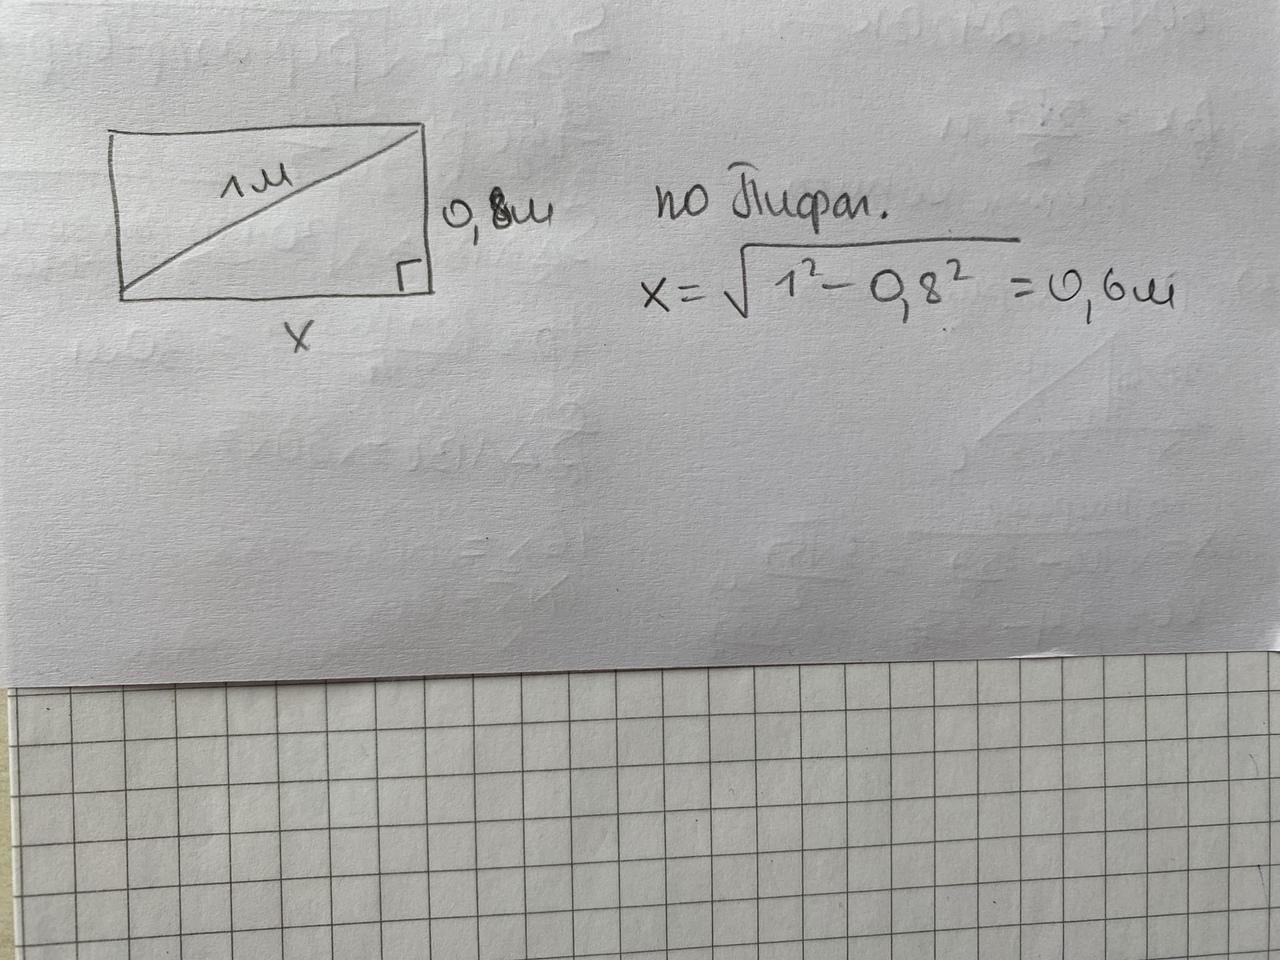 1м
0,8м
x
по Пифаг.
x = √1² – 0,8² = 0,6м